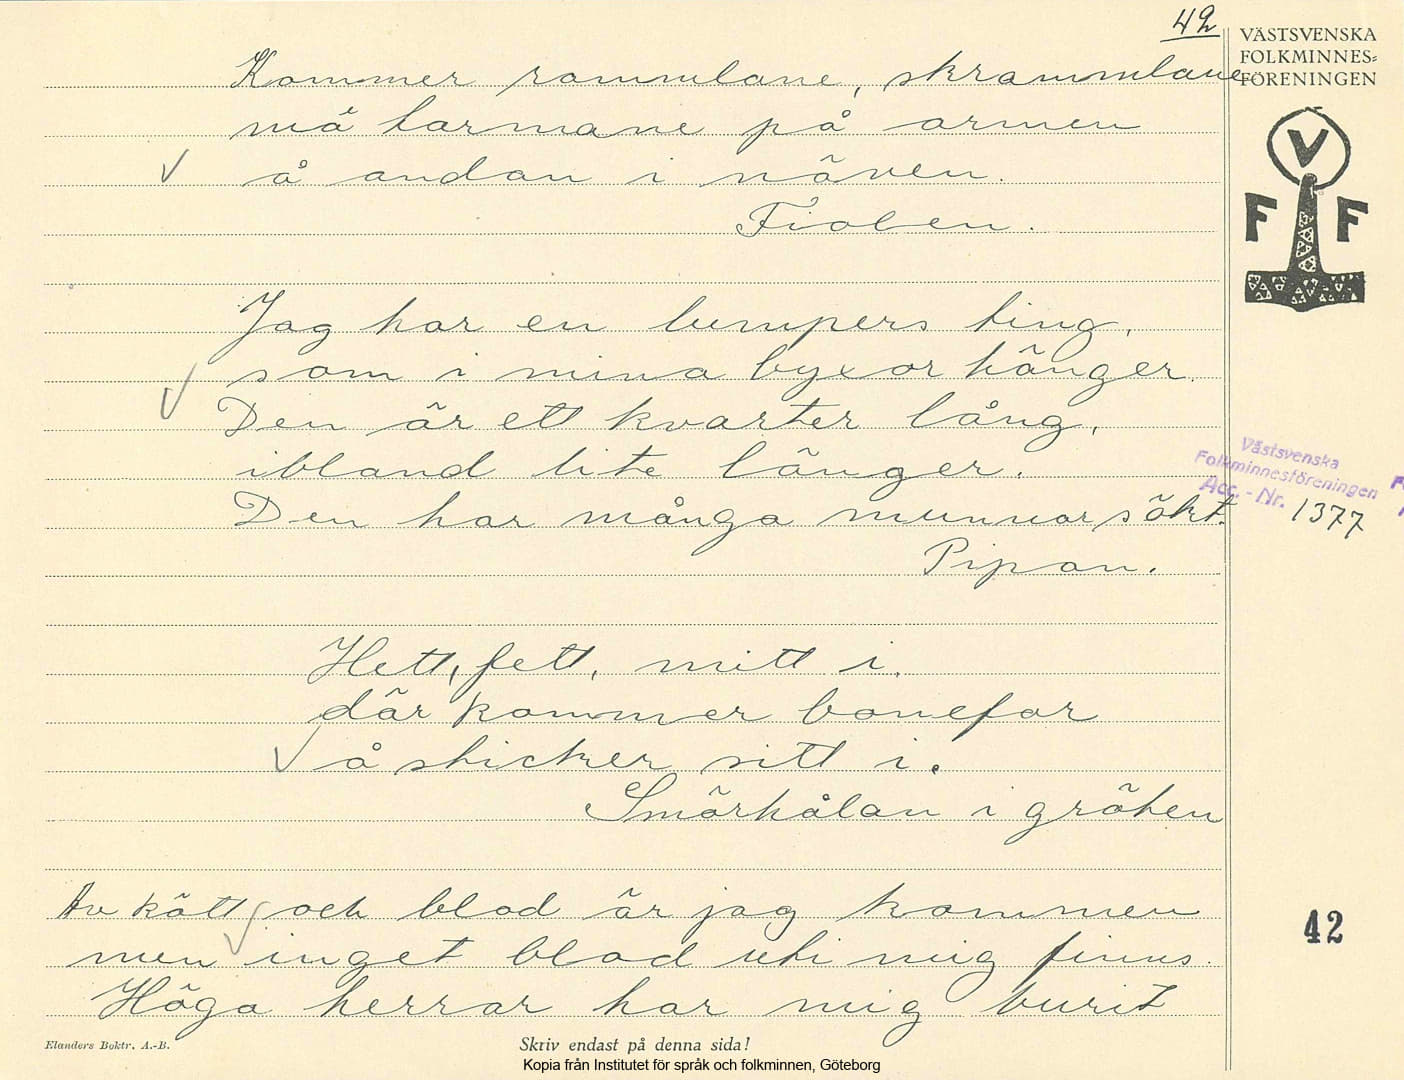 42
VÄSTSVENSKA
FOLKMINNES-
FÖRENINGEN
V
F F
Kommer rammlane, skrammlane
mä tarmane på armen
å andan i näven.
Fiolen.
Jag har en lumpers ting,
som i mina byxor hänger.
Den är ett kvarter lång,
ibland lite länger.
Den har många munnar sökt.
Pipan.
Västsvenska
Folkminnesföreningen
Acc.-Nr. 1377
Hett, fett, mitt i,
där kommer bonefar
å sticker sitt i.
Smörhålan i gröten
Av kött och blod är jag kommen
men inget blod uti mig finns.
Höga herrar har mig burit
42
Elanders Boktr. A.-B.
Skriv endast på denna sida!
Kopia från Institutet för språk och folkminnen, Göteborg